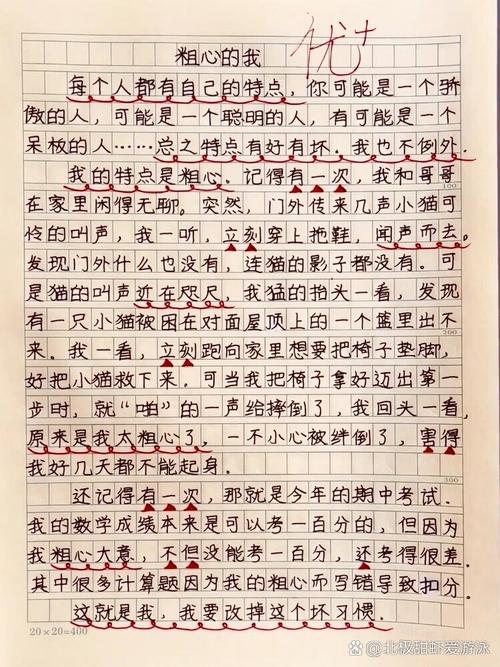 粗心的我
优+
每个人都有自己的特点，你可能是一个骄
傲的人，可能是一个聪明的人，有可能是一个
呆板的人……总之特点有好有坏。我也不例外.
我的特点是粗心。记得有一次，我和哥哥
100
在家里闲得无聊。突然，门外传来几声小猫可
怜的叫声，我一听，立刻穿上拖鞋，闻声而去。
发现门外什么也没有，连猫的影子都没有。可
是猫的叫声近在咫尺，我猛的抬头一看，发现
有一只小猫被困在对面屋顶上的一个篮里出不
200
来。我一看，立刻跑向家里想要把椅子垫脚，
好把小猫救下来，可当我把椅子拿好迈出第一
步时，就“啪”的一声给摔倒了，我回头一看，
原来是我太粗心了。一不小心被绊倒了，害得
我好几天都不能起身。
300
还记得有一次，那就是今年的期中考试.
我的数学成绩本来是可以考一百分的，但因为
我粗心大意，不但没能考一百分，还考得很差.
其中很多计算题因为我的粗心而写错导致扣分.
这就是我，我要改掉这个坏习惯.
20×20=400
北极甜虾爱游泳